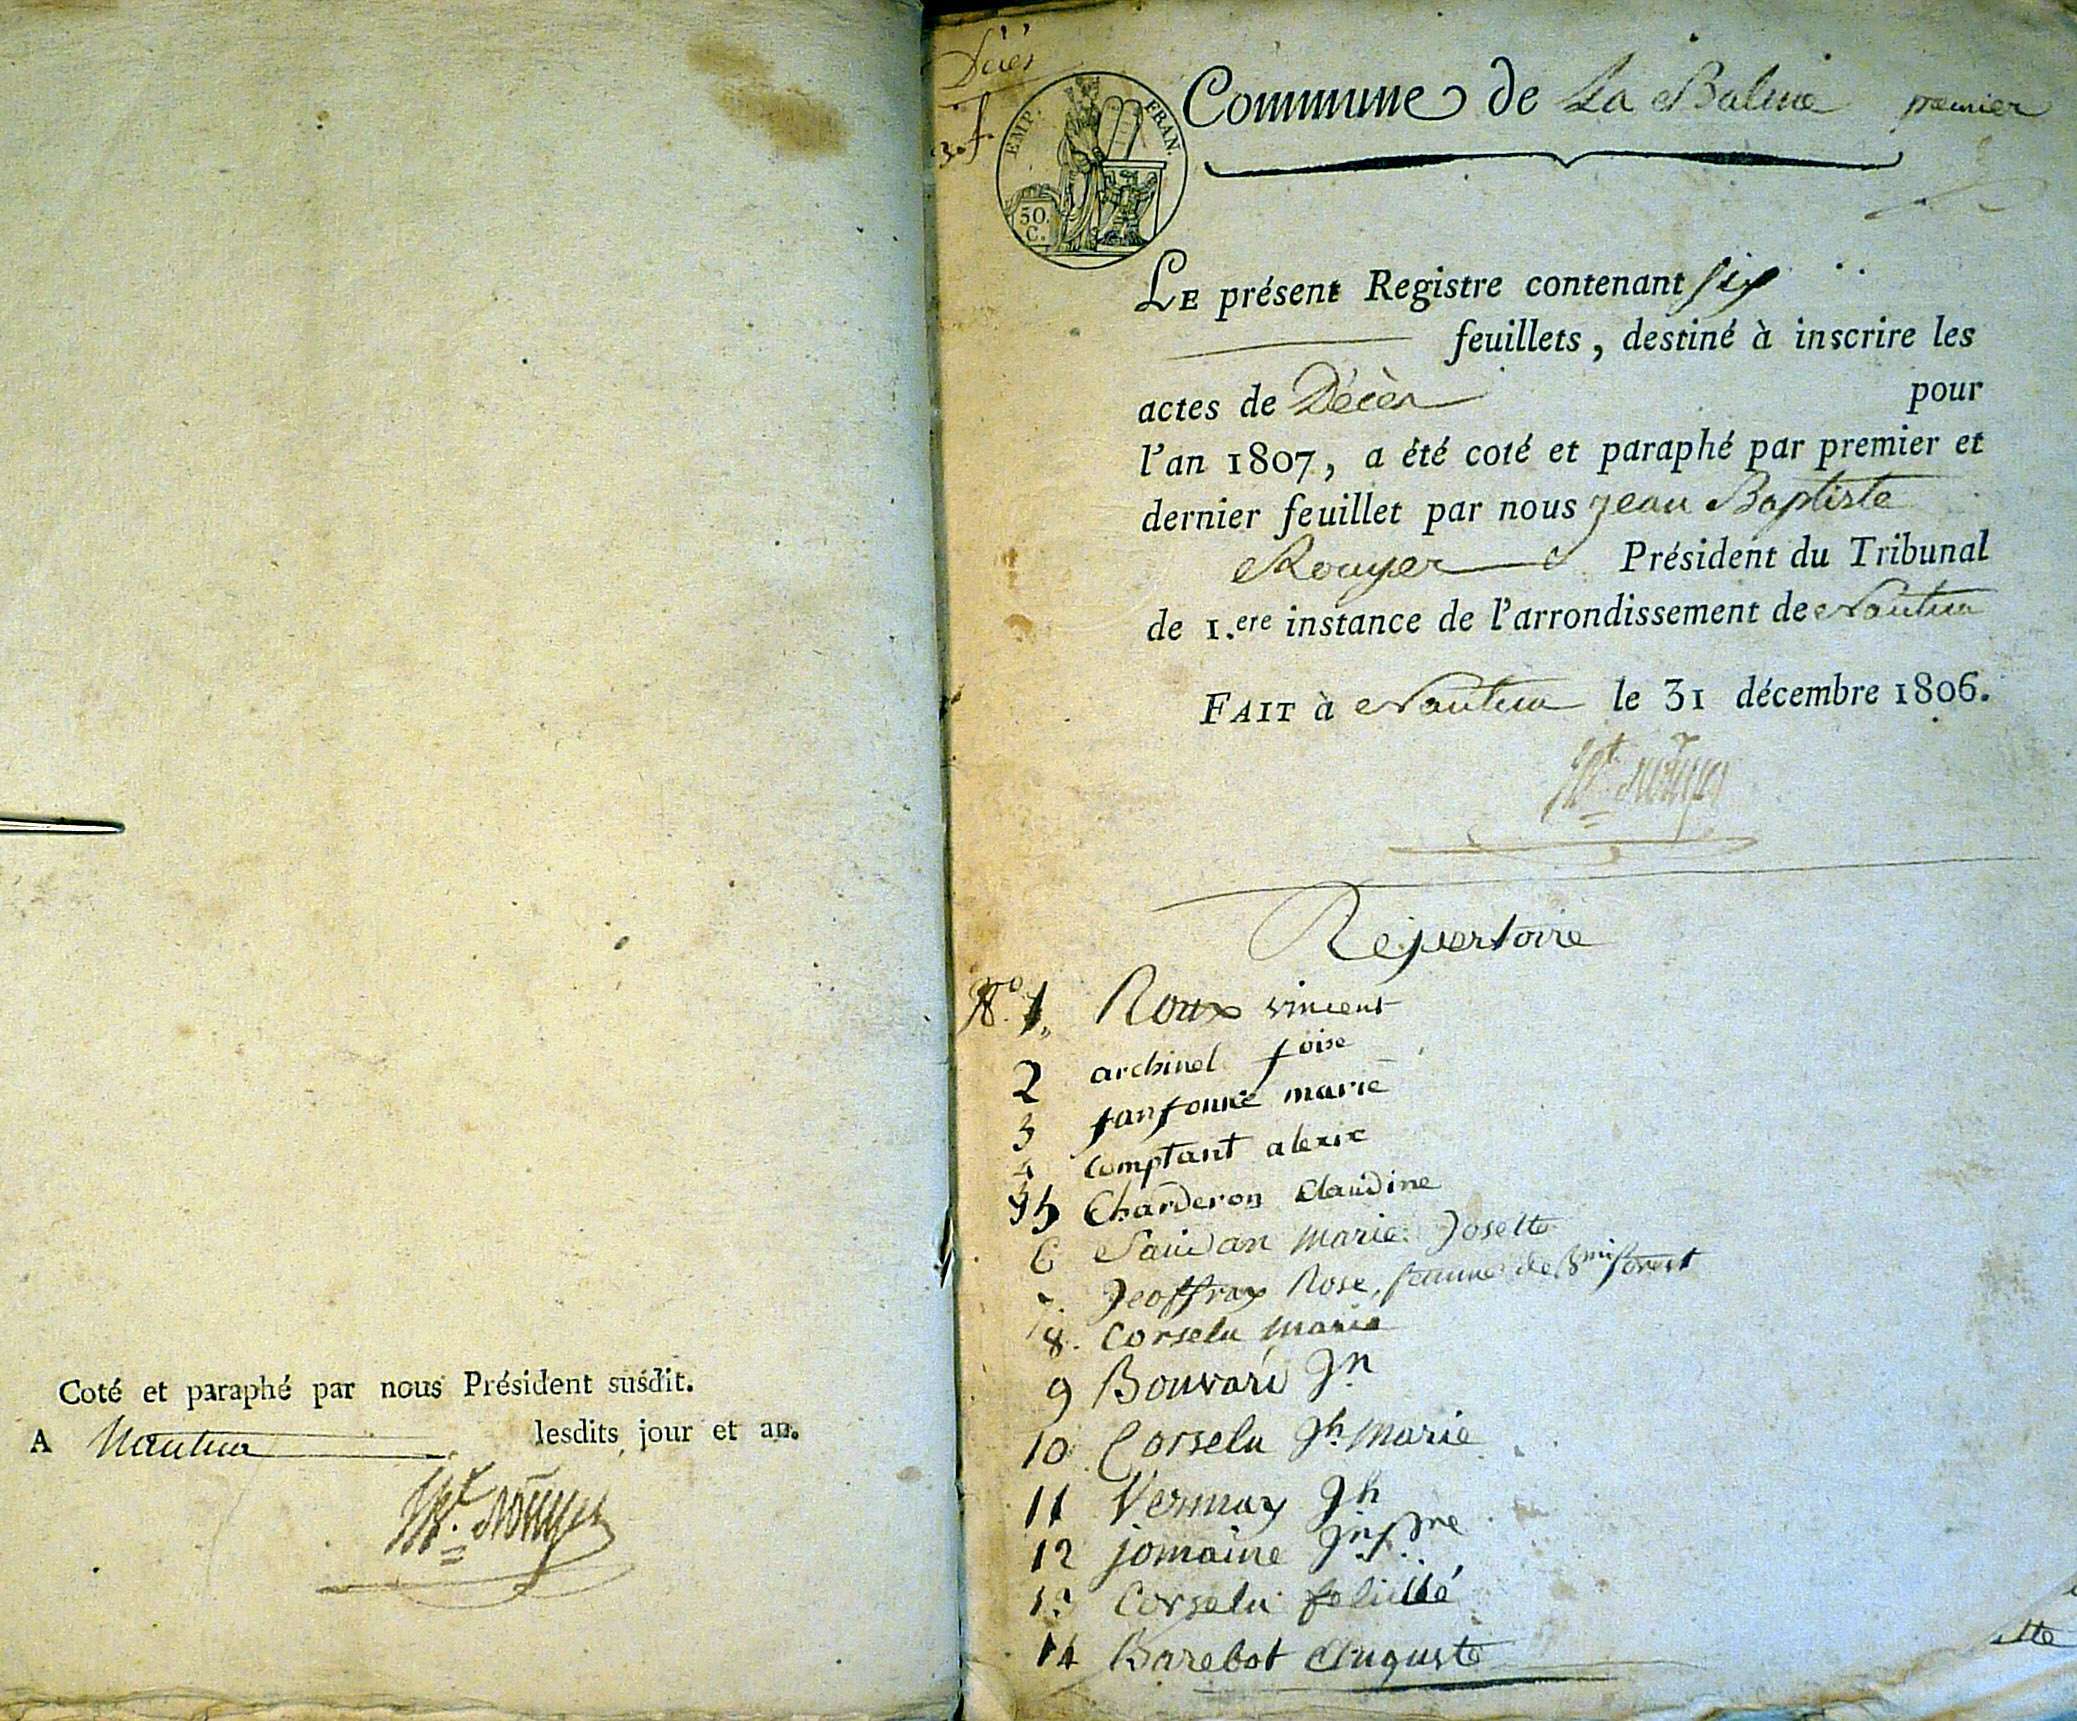 Coté et paraphé par nous Président susdit.
A Nantua lesdits jour et an.
Bte. Rouyer
Décès
EMP. FRAN.
50. C.
Commune de La Balme premier
LE présent Registre contenant six
feuillets, destiné à inscrire les
actes de Décès pour
l'an 1807, a été coté et paraphé par premier et
dernier feuillet par nous Jean Baptiste
Rouyer Président du Tribunal
de 1.ere instance de l'arrondissement de Nantua
FAIT à Nantua le 31 décembre 1806.
Bte. Rouyer
Répertoire
No. 1 Roux vincent
2 archinel foise
3 fanfonne marie
4 Comptant alexis
5 Charderon Claudine
6 Saudan marie Josette
7. Jeoffray Rose, femme de
8. Corselu marie
9 Bouvard Jn
10 Corselu Jh marie
11 Vermay Jh
12 jomaine
13 Corselu felicité
14 Barebot Auguste
tte